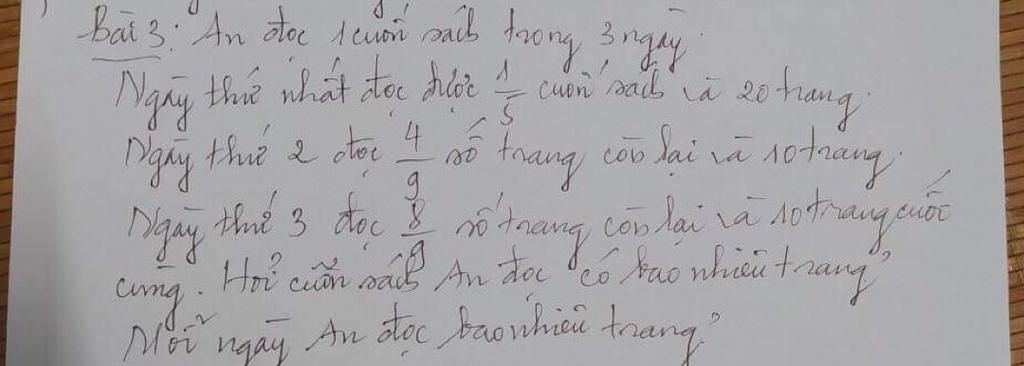 Bài 3: An đọc 1 cuốn sách trong 3 ngày.
Ngày thứ nhất đọc được 1/5 cuốn sách và 20 trang.
Ngày thứ 2 đọc 4/9 số trang còn lại và 10 trang.
Ngày thứ 3 đọc 8/9 số trang còn lại và 10 trang cuối
cùng. Hỏi cuốn sách An đọc có bao nhiêu trang?
Mỗi ngày An đọc bao nhiêu trang?